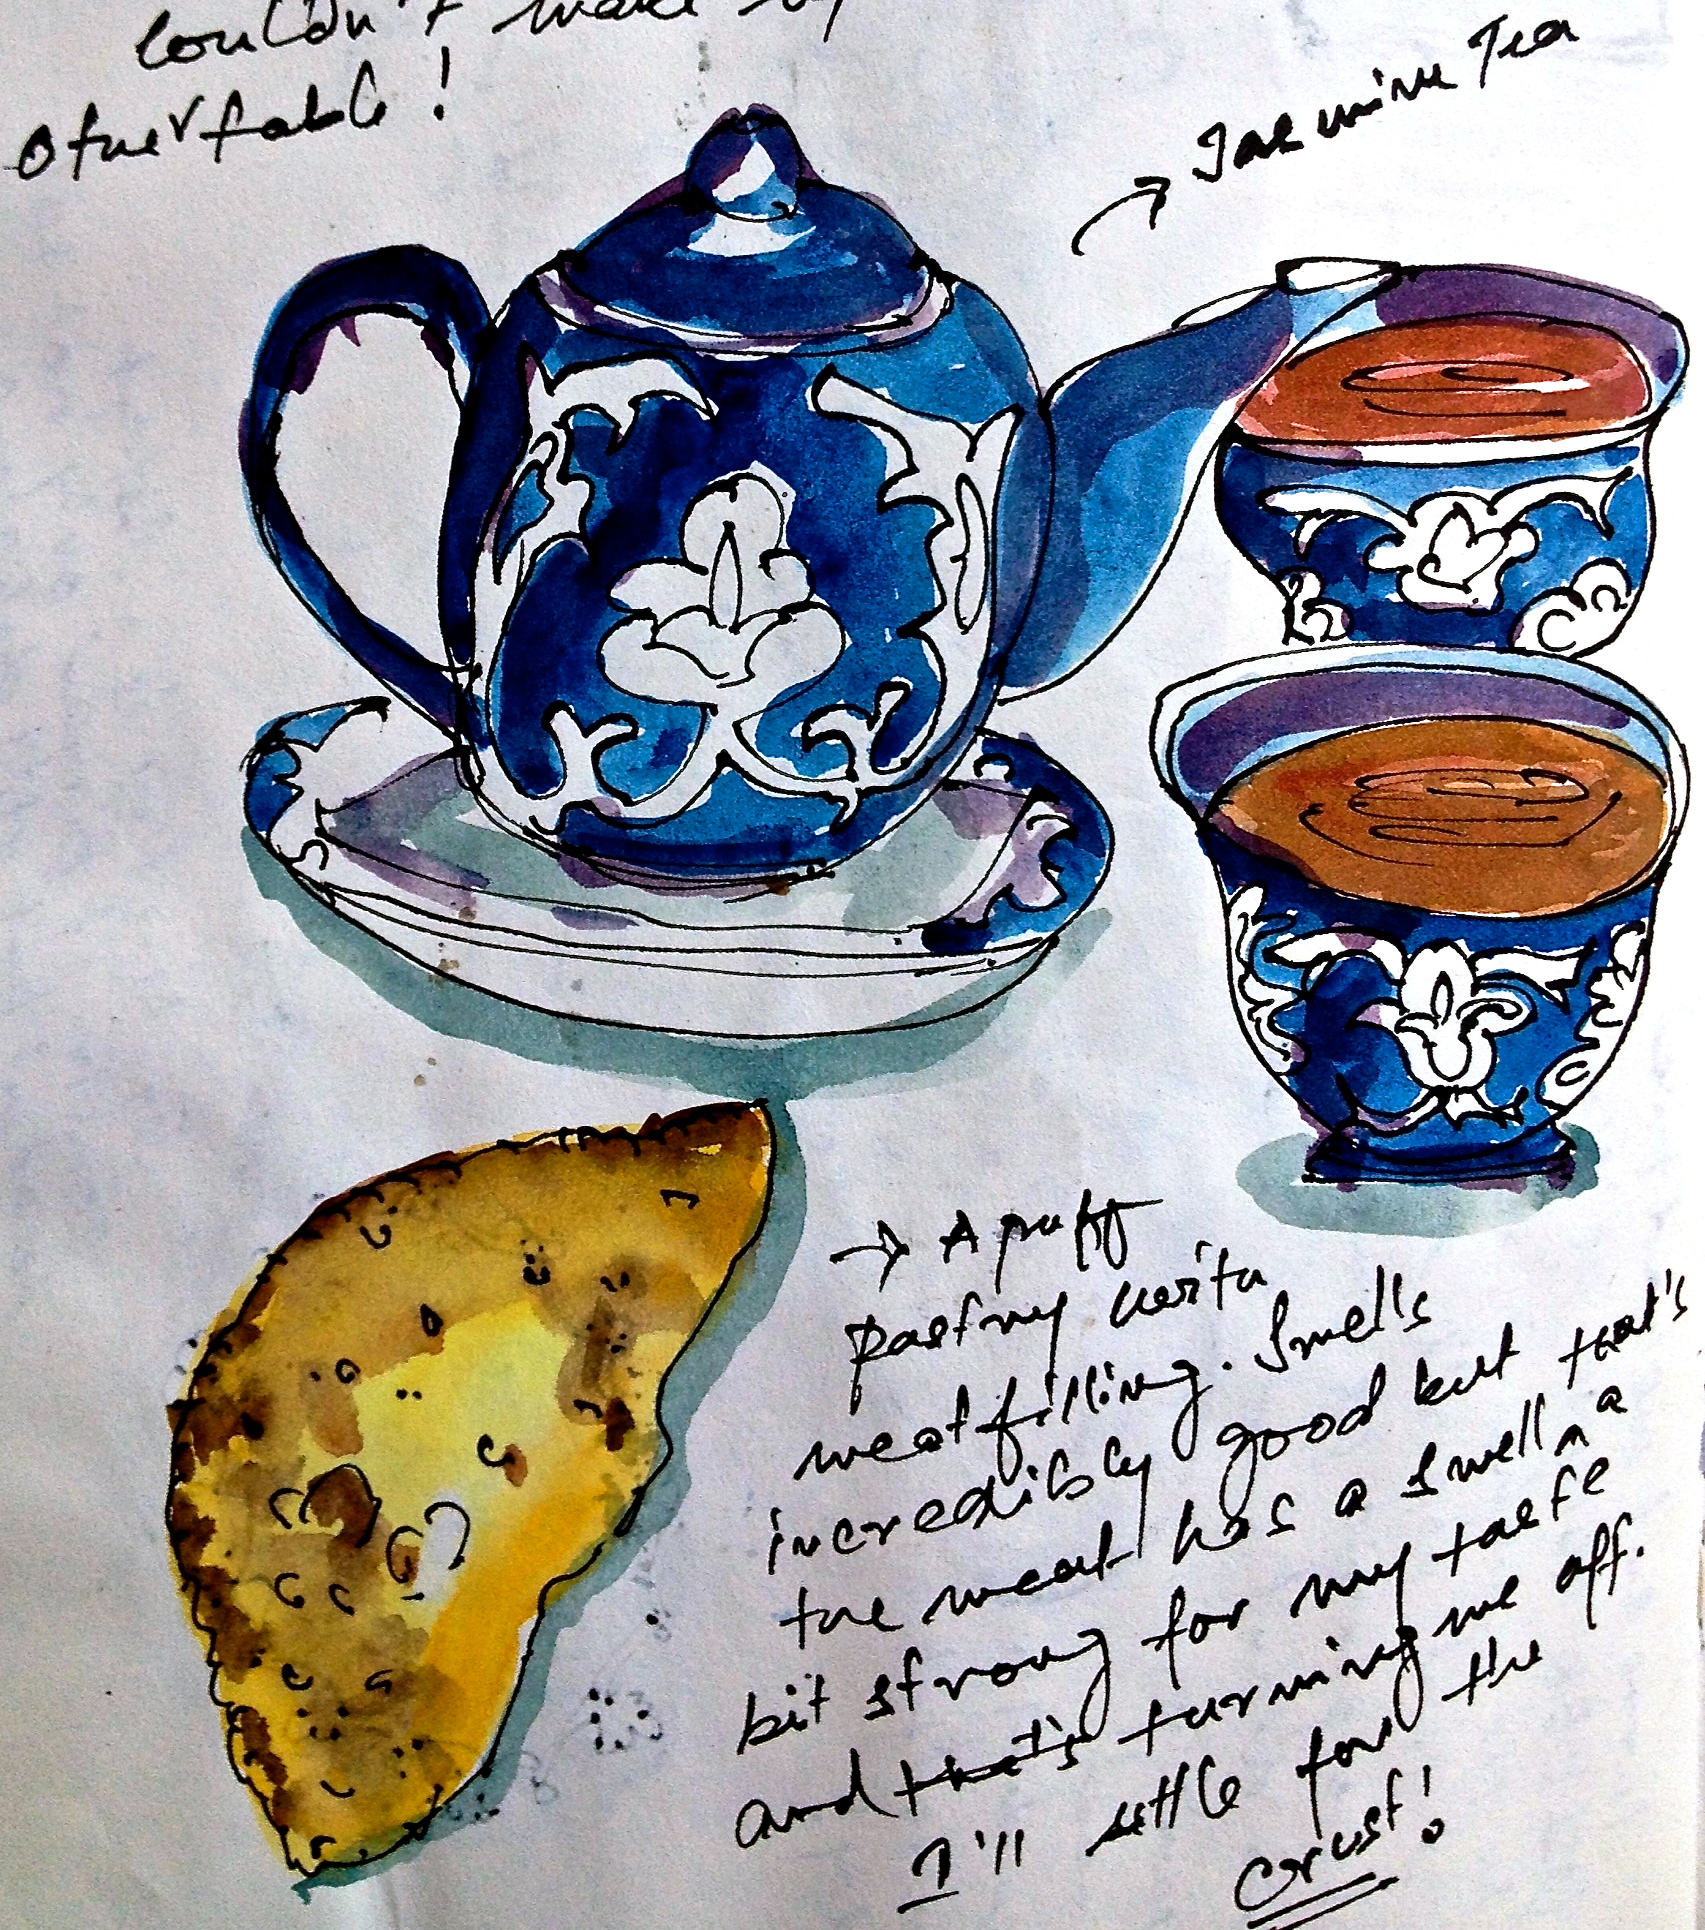 couldn't make
other table!
Jasmine Tea
→ A puff
pastry with
meat filling. Smells
incredibly good but that's
the meat has a smell a
bit strong for my taste
and that's turning me off.
I'll settle for the
crust!